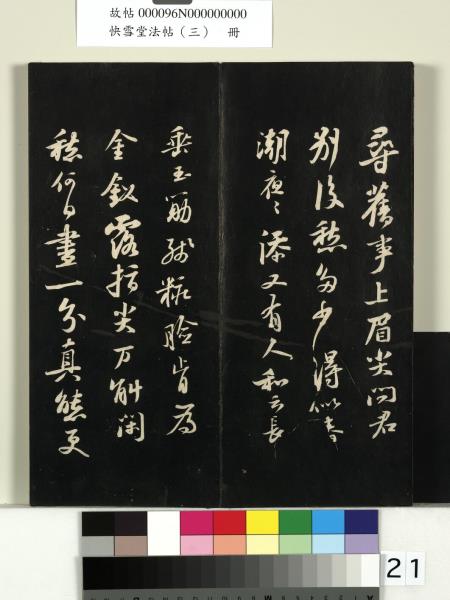 故帖 000096N000000000
快雪堂法帖（三） 冊
尋舊事上眉尖問君
別後愁多少得似春
潮夜〻添又有人和云長
垂玉筋殘糚臉肯為
金釵露指尖万斛閑
愁何日盡一分真態更
21